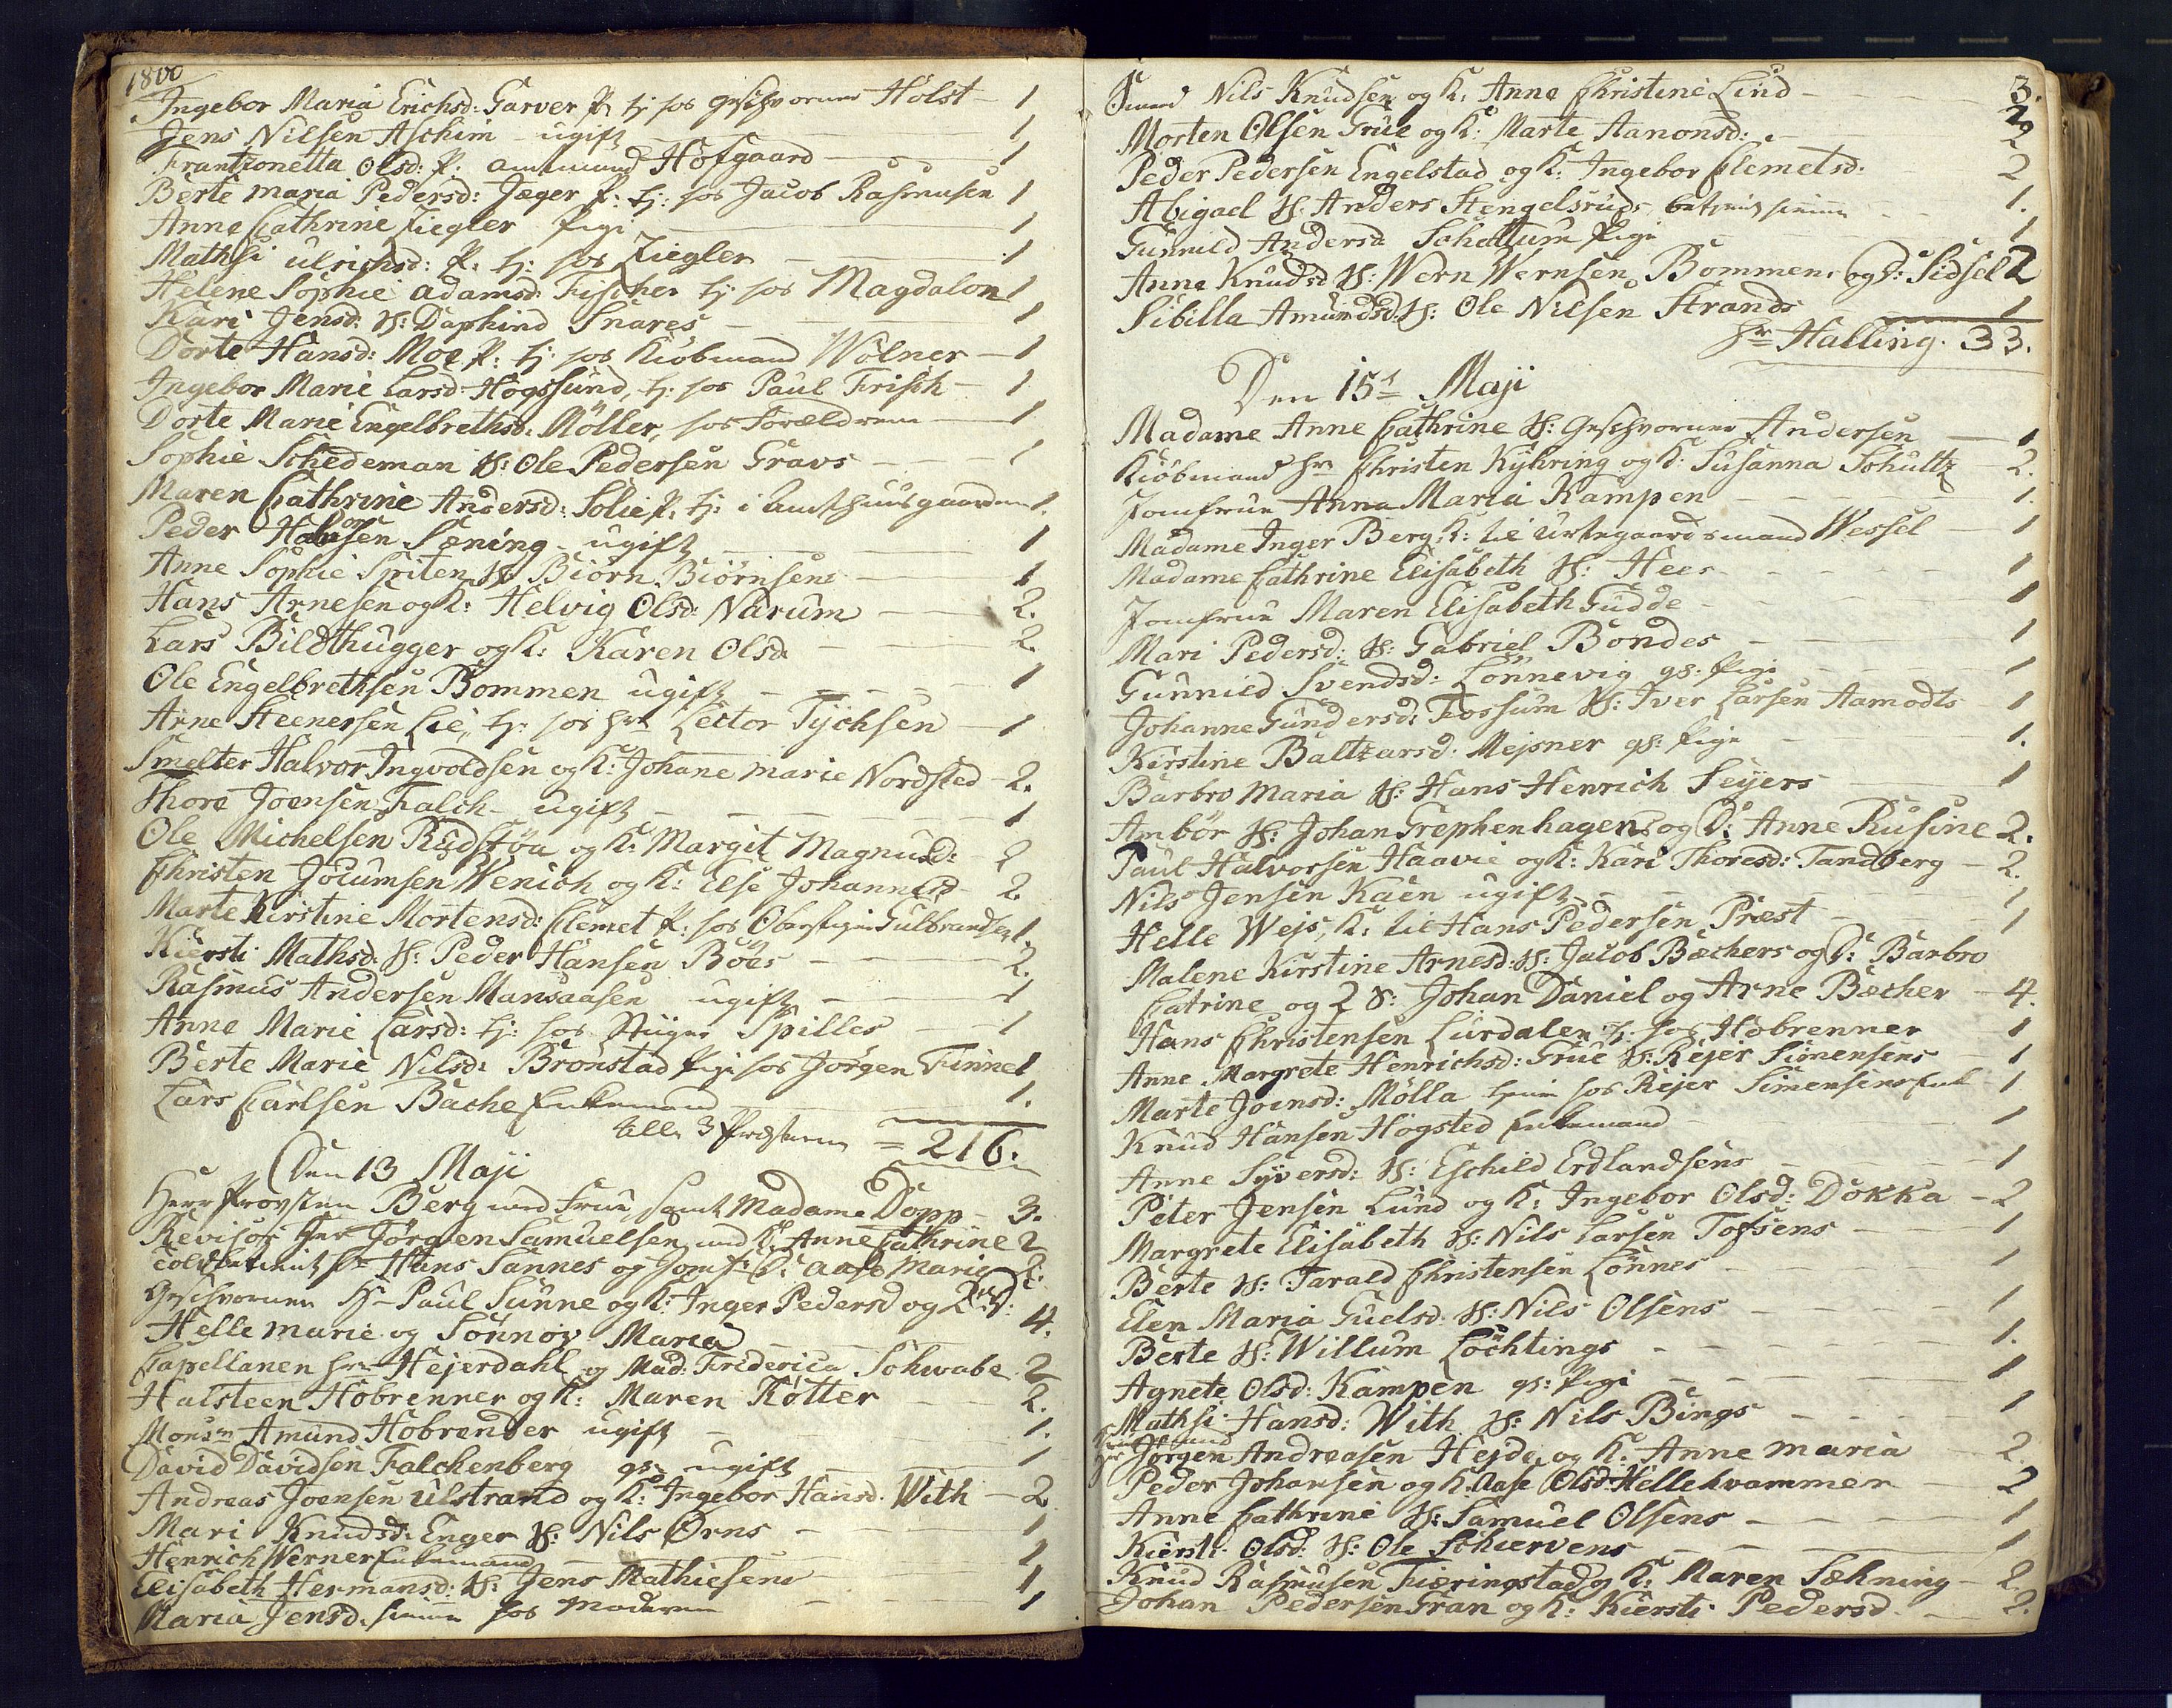 1800
Ingebor Maria Erichsd: Garver P. tj: hos Geschvorner Holst - 1
Jens Nilsen Aschim - ugift - 1
Frantzonetta Olsd: P. amtmand Hofgaard - 1
Berte Maria Pedersd: Jæger P: tj: hos Jacob Rasmusen 1
Anne Cathrine Ziegler Pige - 1
Mathsi Ulrichsd: P: tj: hos Ziegler - 1
Helene Sophie Adamsd: Fischer tj hos Magdalon 1
Kari Jensd: H: Daphind Snares - 1
Dorte Hansd: Moe P: tj: hos Kiøbmand Wølner - 1
Ingebor Marie Larsd: Hogssund, tj: hos Paul Frisch - 1
Dorte Marie Engelbrethsd: Møller, hos Forældrene - 1
Sophie Schedeman H: Ole Pedersen Gravs - 1
Maren Cathrine Andersd: Solie P: tj: i Amthuusgaarden 1.
Peder Halvorsen Sæning - ugift - 1
Anne Sophie Spriten H: Biørn Biørnsens - 1
Hans Arnesen og K: Helvig Olsd: Narum - 2.
Lars Bildthugger og K: Karen Olsd - 2.
Ole Engelbrethsen Bommen ugift - 1
Arne Steenersen Lie, tj: hos Hr Lector Tychsen - 1
Smelter Halvor Ingvoldsen og K: Johane Marie Nordsted - 2.
Thore Joensen Falch - ugift - 1
Ole Michelsen Rudstøa og K: Margit Magnusd: 2
Christen Jocumsen Wenich og K: Else Johannesd - 2.
Marte Kirstine Mortensd: Clemet P: hos Gulbrandsen 1.
Kiersti Mathsd: H: Peder Hansen Böes - 2.
Rasmus Andersen Mansaasen ugift - 1
Anne Marie Larsd: tj: hos Stiger Spilles - 1
Berte Marie Nilsd: Bronstad Pige hos Jørgen Finne 1
Lars Carlsen Bache Enkemand - 1.
alle 3 Præsterne = 216.
Den 13 Maji
Herr Provsten Berg med Frue, samt Madame Dopp - 3.
Revisor Her Jørgen Samuelsen med K: Anne Cathrine 2
Toldbetient Hr Hans Sannes og Jomf: D: Aase Marie 2.
Geschvorner Hr Paul Sunne og K: Inger Pedersd og 2 D:
Helle Marie og Sönnov Maria - 4.
Capellanen Hr Hejerdahl og Mad: Friderica Schwabe 2
Halsteen Hobrenner og K: Maren Kötter - 2.
Monsr Amund Hobrender ugift - 1.
David Davidsen Falchenberg gs: ugift - 1
Andreas Joensen Ulstrand og K: Ingebor Hansd. With - 2
Mari Knudsd: Enger H: Nils Ørns - 1
Henrich Werner Enkemand - 1
Elisabeth Hermansd: H: Jens Mathiesens - 1
Maria Jensd. sinne hos Moderen - 1
Nils Knudsen og K: Anne Christine Lind - 3.
Morten Olsen Grue og K: Marte Aanonsd: - 2
Peder Pedersen Engelstad og K: Ingebor Clemetsd: 2
Abigael H: Anders Stengelsruds - 1.
Gunnild Andersd Schattum Pige - 1
Anne Knudsd H: Wern Wernsen Bommen, og D: Sidsel 2
Sibilla Amundsd: H: Ole Nilsen Strands - 1
Hr Halling. 33.
Den 15t Maji
Madame Anne Cathrine H: Geschvorner Andersen - 1
Kiøbmand Hr Christen Kyhring og K: Susanna Schultz - 2.
Jomfrue Anna Maria Kampen - 1.
Madame Inger Berg K: til Urtegaardsmand Wessel - 1
Madame Cathrine Elisabeth H: Heer - 1
Jomfrue Maren Elisabeth Gudde - 1
Mari Pedersd: H: Gabriel Bondes - 1
Gunnild Svendsd: Lönnevig gs: Pige - 1
Johanne Gundersd: Fossum H: Iver Larsen Aamodts - 1
Kirstine Baltzarsd: Mejsner gs: Pige - 1.
Barbro Maria H: Hans Henrich Seyers - 1
Ambör H: Johan Grephenhagens og D: Anne Rusine 2.
Paul Halvorsen Haavie og K: Kari Thoresd: Tandberg - 2.
Nils Jensen Kaen ugift - 1
Helle Wejs, K: til Hans Pedersen Præst - 1
Malene Kirstine Arnesd: H: Jacob Bæchers og D: Barbro
Catrine og 2 S: Johan Daniel og Arne Bæcher - 4.
Hans Christensen Lurdalen tj: hos Hobrenner - 1
Anne Margrete Henrichsd: Grue H: Rejer Simensens - 1
Marte Joensd: Mölla hos Rejer Simensens - 1
Knud Hansen Högsted Enkemand - 1
Anne Syversd: H: Eschild Erdlandsens - 1
Peter Jensen Lund og K: Ingebor Olsd: Dokka - 2
Margrete Elisabeth H: Nils Larsen Tofsens - 1
Berte H: Tarald Christensen Lönnes - 1
Elen Maria Guelsd. H: Nils Olsens - 1
Berte H: Willum Löchtings - 1.
Agnete Olsd: Kampen gs: Pige - 1
Mathsi Hansd: With H: Nils Bings - 1
Jørgen Andreasen Hejde og K: Anne Maria 2
Peder Johansen og K: Aase Olsd: Hellekvammer - 2
Anne Cathrine H: Samuel Olsens - 1
Kiersti Olsd: H: Ole Schiervens - 1
Knud Rasmusen Fiæringstad og K: Maren Sæhning - 2.
Johan Pedersen Gran og K: Kiersti Pedersd - 2.